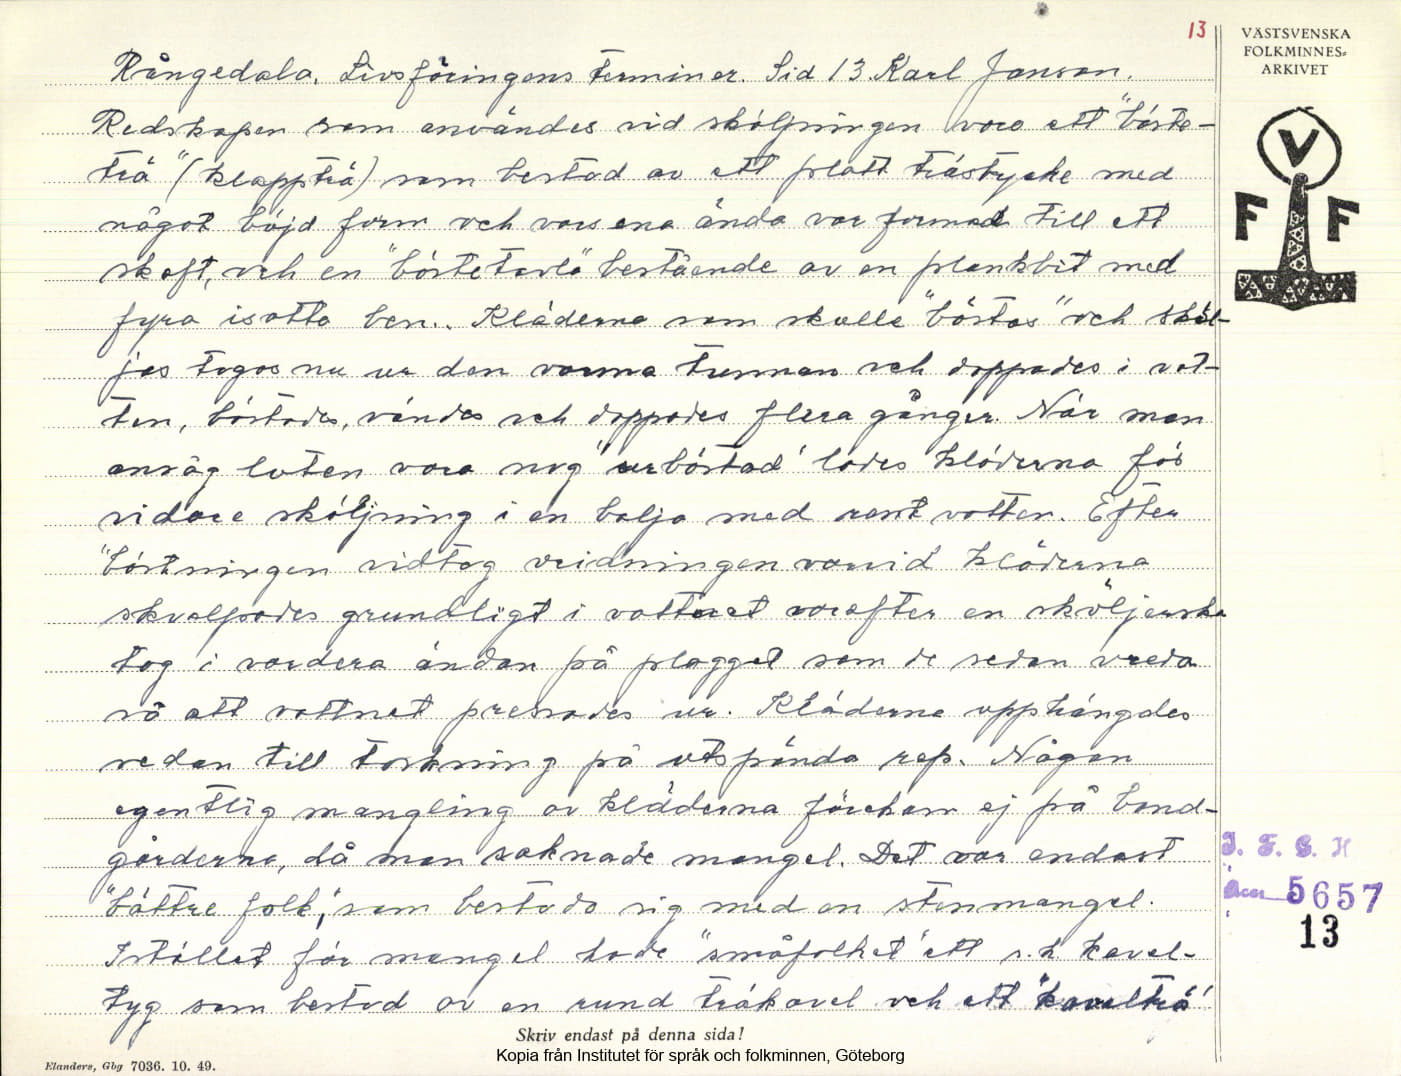 13
VÄSTSVENSKA
FOLKMINNES-
ARKIVET
V
F F
Rångedala. Livsföringens terminer. Sid 13. Karl Janson.
Redskapen som användes vid sköljningen voro ett "börste-
trä" (klappträ) som bestod av ett platt trästycke med
något böjd form och vars ena ända var formad till ett
skaft, och en "börstetavla" bestående av en plankbit med
fyra isatta ben.. Kläderna som skulle "börstas" och sköl-
jas togos nu ur den varma tunnan och doppades i vat-
ten, börstades, vändes och doppades flera gånger. När man
ansåg luten vara nog "urbörstad" lades kläderna för
vidare sköljning i en balja med rent vatten. Efter
"börstningen vidtog vridningen varvid kläderna
skvalpades grundligt i vattnet varefter en sköljerska
tog i vardera ändan på plagget som de sedan vreda
så att vattnet pressades ur. Kläderna upphängdes
sedan till torkning på utspända rep. Någon
egentlig mangling av kläderna förekom ej på bond-
gårderna, då man saknade mangel. Det var endast
"bättre folk", som bestodo sig med en stenmangel.
Istället för mangel hade "småfolket" ett s.k kavel-
tyg som bestod av en rund träkavel och ett "kavelträ"
I. F. G. H
5657
13
Skriv endast på denna sida!
Kopia från Institutet för språk och folkminnen, Göteborg
Elanders, Gbg 7036. 10. 49.